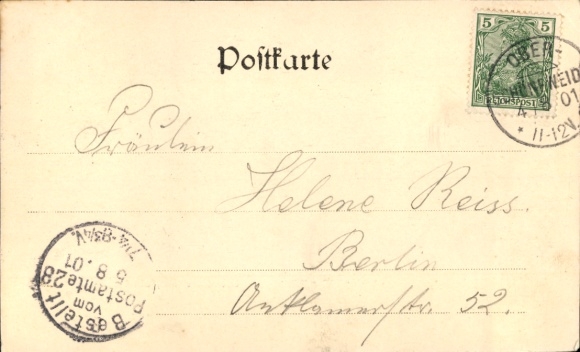 Postkarte
5 5
REICHSPOST
OBER-
4 8 01
* 11-12V.
Fräulein
Helene Reiss.
Berlin
Anklamerstr. 52.
Bestellt
vom
Postamte 28
5 8. 01
7¼-8¾V.